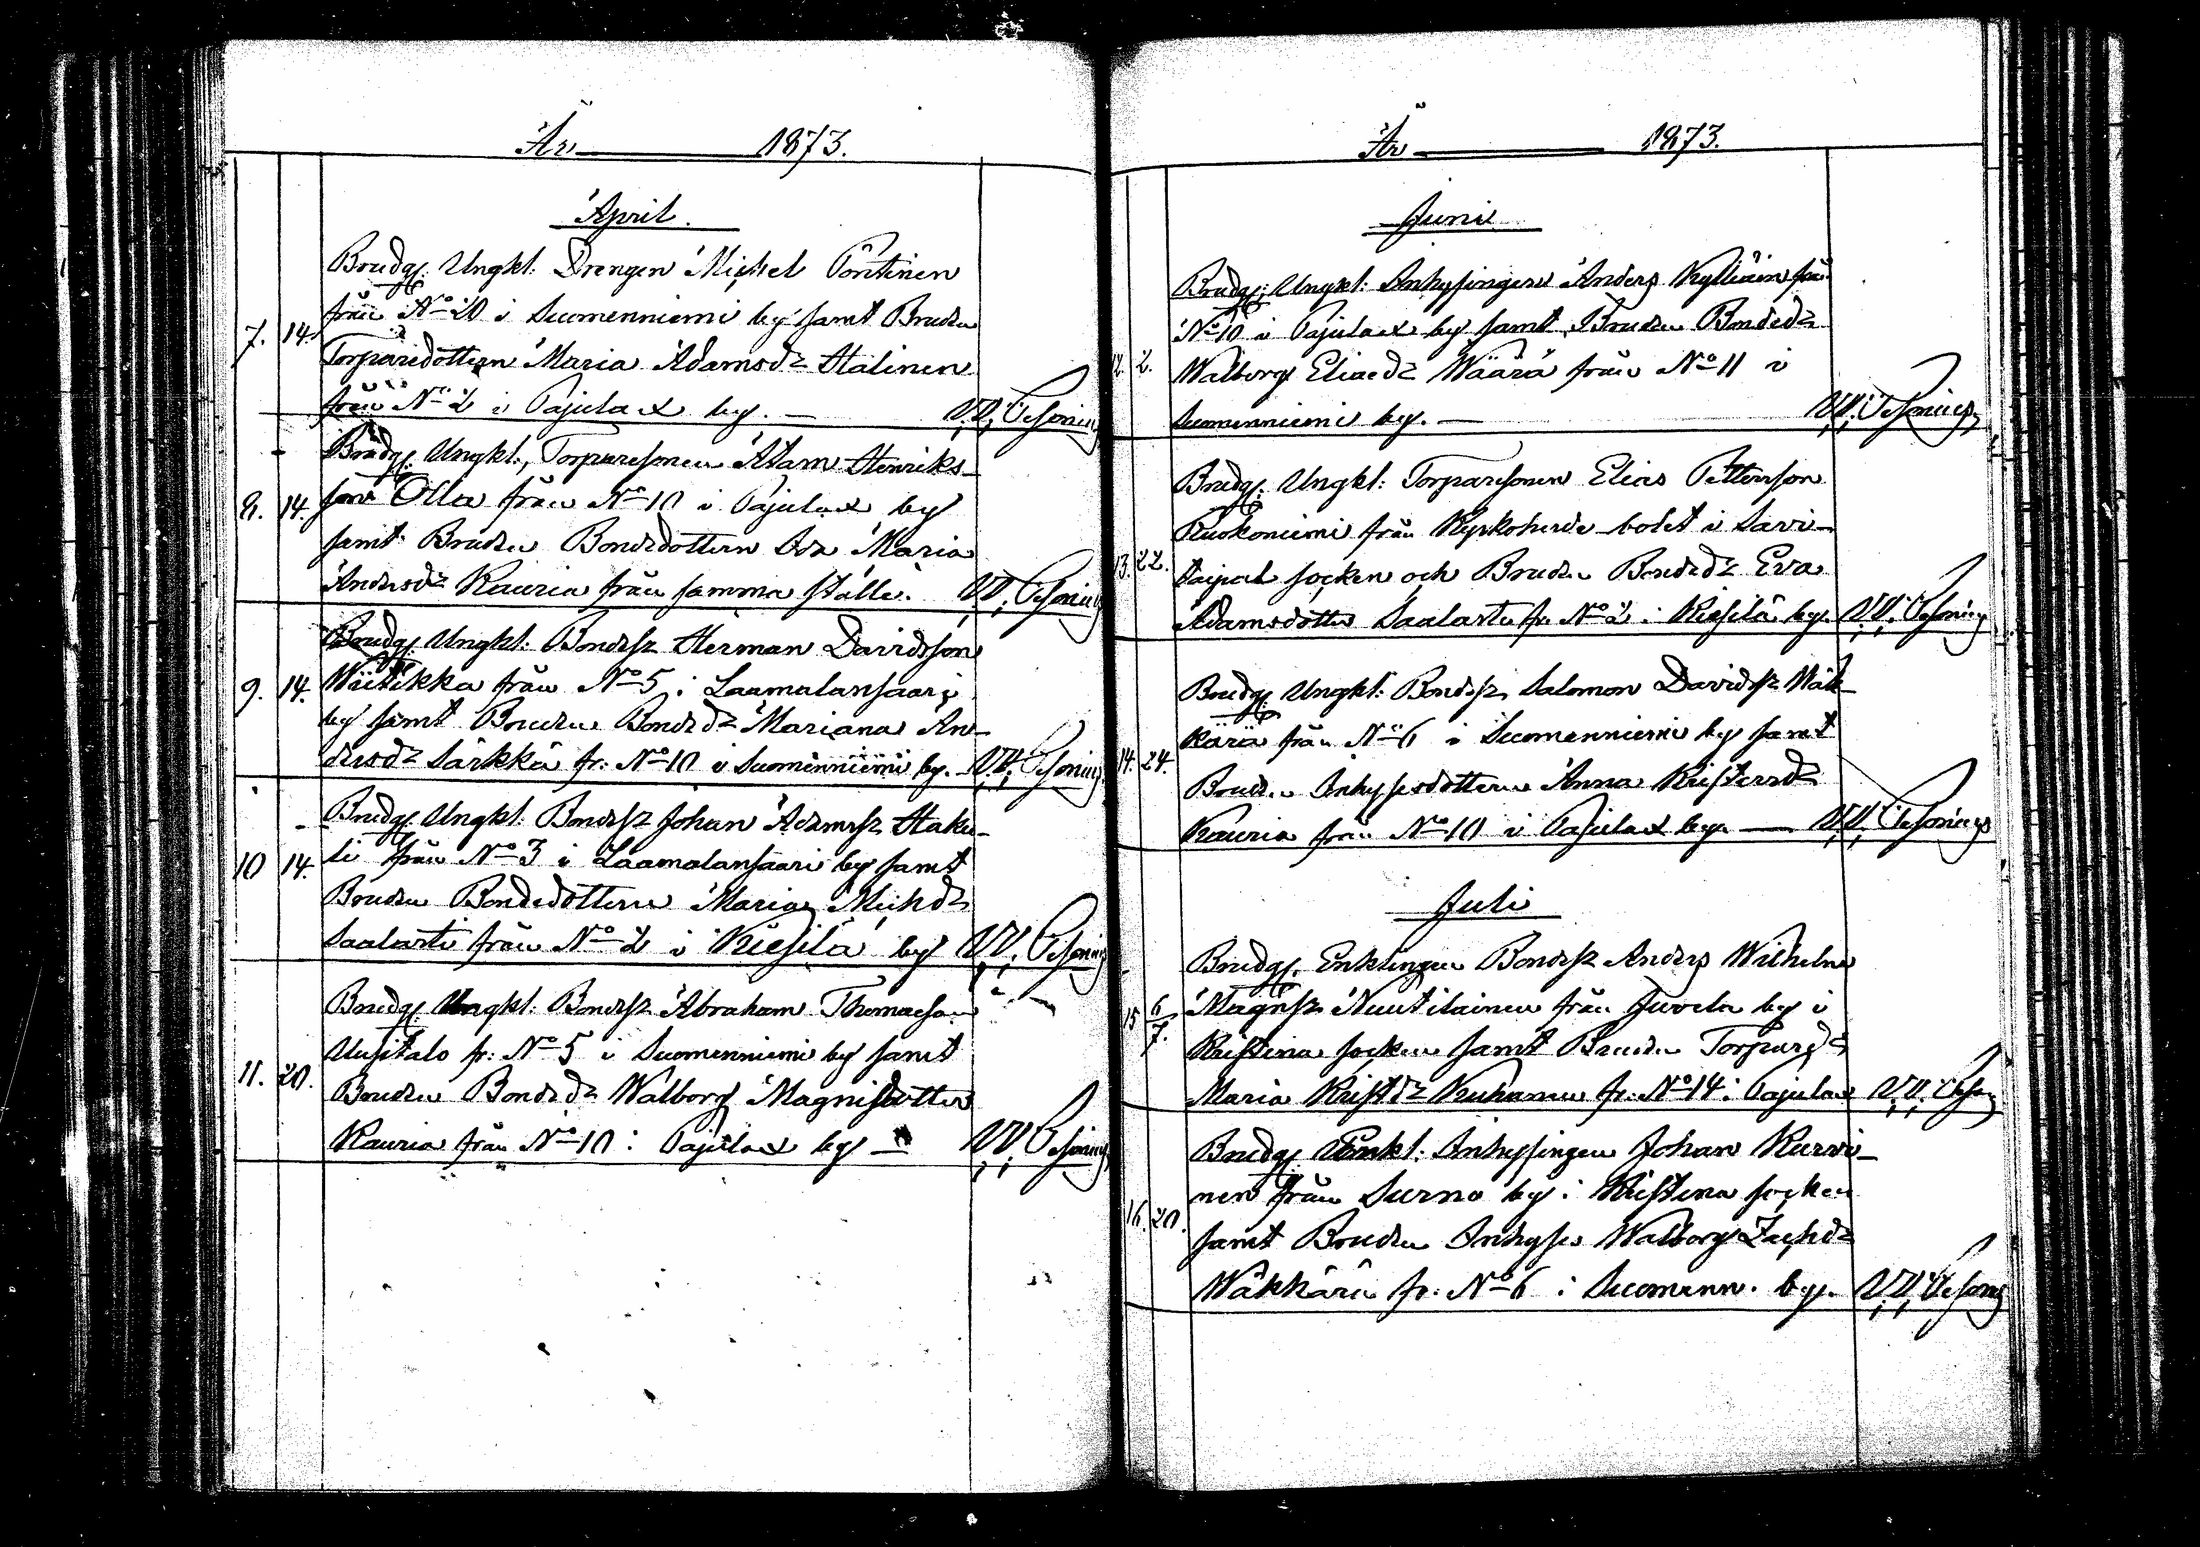 År 1873.
April.
Brudg. Ungkl: Drengen Michel Pöntinen
från No 20 i Suomenniemi by samt Bruden
7. 14. Torparedottern Maria Adamsdr Halinen
från No 2 i Pajulax by. —
Brudg. Ungkl:, Torparesonen Adam Henriks-
8. 14. son Olla från No 10 i Pajulax by
samt Bruden Bondedottern Ida Maria
Andersdr Kauria från samma ställe.
Brudg. Ungkl: Bondesr Herman Davidsson
9. 14. Wiitikka från No 5 i Laamalansaari
by samt Bruden Bondedr Mariana An-
dersdr Särkkä fr: No 10 i Suomenniemi by.
Brudg. Ungkl: Bondesr Johan Adamsr Haku-
10 14. li från No 3 i Laamalansaari by samt
Bruden Bondedottern Maria Michdr
Saalasti från No 2 i Kiesilä by
Brudg. Ungkl: Bondesr Abraham Thomasson
Uusitalo fr: No 5 i Suomenniemi by samt
11. 20. Bruden Bondedr Walborg Magnisdotter
Kauria från No 10 i Pajulax by —
År 1873.
Juni
Brudg: Ungkl: Inhysingen Anders Kylliäin från
No 10 i Pajulax by samt Bruden Bondedr
12. 2. Walborg Eliaedr Wäärä från No 11 i
Suomenniemi by. —
Brudg. Ungkl: Torparesonen Elias Pettersson
Ruokoniemi från Kyrkoherde bolet i Savi-
13. 22. taipal socken och Bruden Bondedr Eva
Adamsdotter Saalasti fr. No 2 i Kiesilä by.
Brudg. Ungkl: Bondesr Salomon Davidsr Wäk-
kärä från No 6 i Suomenniemi by samt
14. 24. Bruden Inhysesdottern Anna Kristersdr
Kauria från No 10 i Pajulax by. —
Juli
Brudg. Enklingen Bondesr Anders Wilhelm
15 6/7. Magnsr Nuutilainen från Juvola by i
Kristina socken samt Bruden Torparedr
Maria Kristdr Kuhanen fr: No 14 i Pajulax
Brudg. Enkl: Inhysingen Johan Kurvi-
nen från Surno by i Kristina socken
16. 20. samt Bruden Inhyses Walborg Zachdr
Wäkkärä fr: No 6 i Suomenn. by.